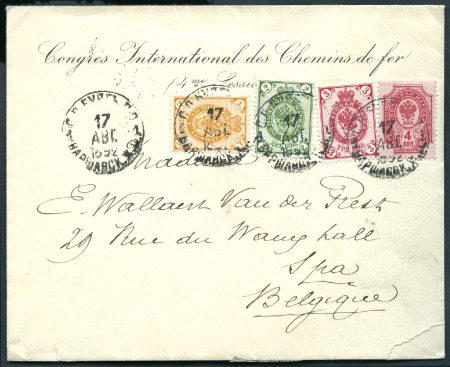 Congrès International des Chemins de fer
(4me Sessio
17
АВГ.
1892
17
АВГ.
17
АВГ.
1892
17
АВГ.
1892
Madame
E. Wallaert Van der Prest
29 Rue du Wauxhall
Spa
Belgique